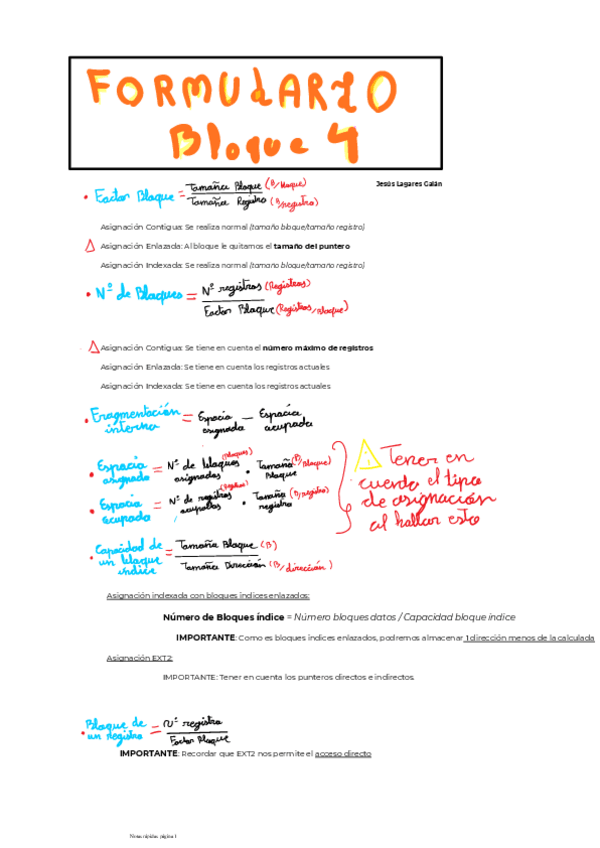 FORMULARIO
Bloque 4
Jesús Lagares Galán
• Factor Bloque = Tamaño Bloque (B/bloque)
Tamaño Registro (B/registro)
Asignación Contigua: Se realiza normal (tamaño bloque/tamaño registro)
Asignación Enlazada: Al bloque le quitamos el tamaño del puntero
Asignación Indexada: Se realiza normal (tamaño bloque/tamaño registro)
• Nº de Bloques = Nº registros (Registros)
Factor Bloque (Registros/Bloque)
Asignación Contigua: Se tiene en cuenta el número máximo de registros
Asignación Enlazada: Se tiene en cuenta los registros actuales
Asignación Indexada: Se tiene en cuenta los registros actuales
• Fragmentación interna = Espacio asignado − Espacio ocupado
• Espacio asignado = Nº de bloques asignados (Bloques) · Tamaño Bloque (B/Bloque)
• Espacio ocupado = Nº de registros ocupados (Registros) · Tamaño registro (B/registro)
! Tener en
cuenta el tipo
de asignación
al hallar esto
• Capacidad de un bloque índice = Tamaño Bloque (B)
Tamaño Dirección (B/dirección)
Asignación indexada con bloques índices enlazados:
Número de Bloques índice = Número bloques datos / Capacidad bloque índice
IMPORTANTE: Como es bloques índices enlazados, podremos almacenar 1 dirección menos de la calculada
Asignación EXT2:
IMPORTANTE: Tener en cuenta los punteros directos e indirectos.
• Bloque de un registro = Nº registro
Factor Bloque
IMPORTANTE: Recordar que EXT2 nos permite el acceso directo
Notas rápidas página 1